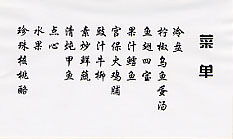 菜单
冷盘
柠檬乌鱼蛋汤
鱼翅四宝
果汁鳕鱼
宫保火鸡脯
豉汁牛柳
素炒鲜蔬
清炖甲鱼
点心
水果
珍珠核桃酪